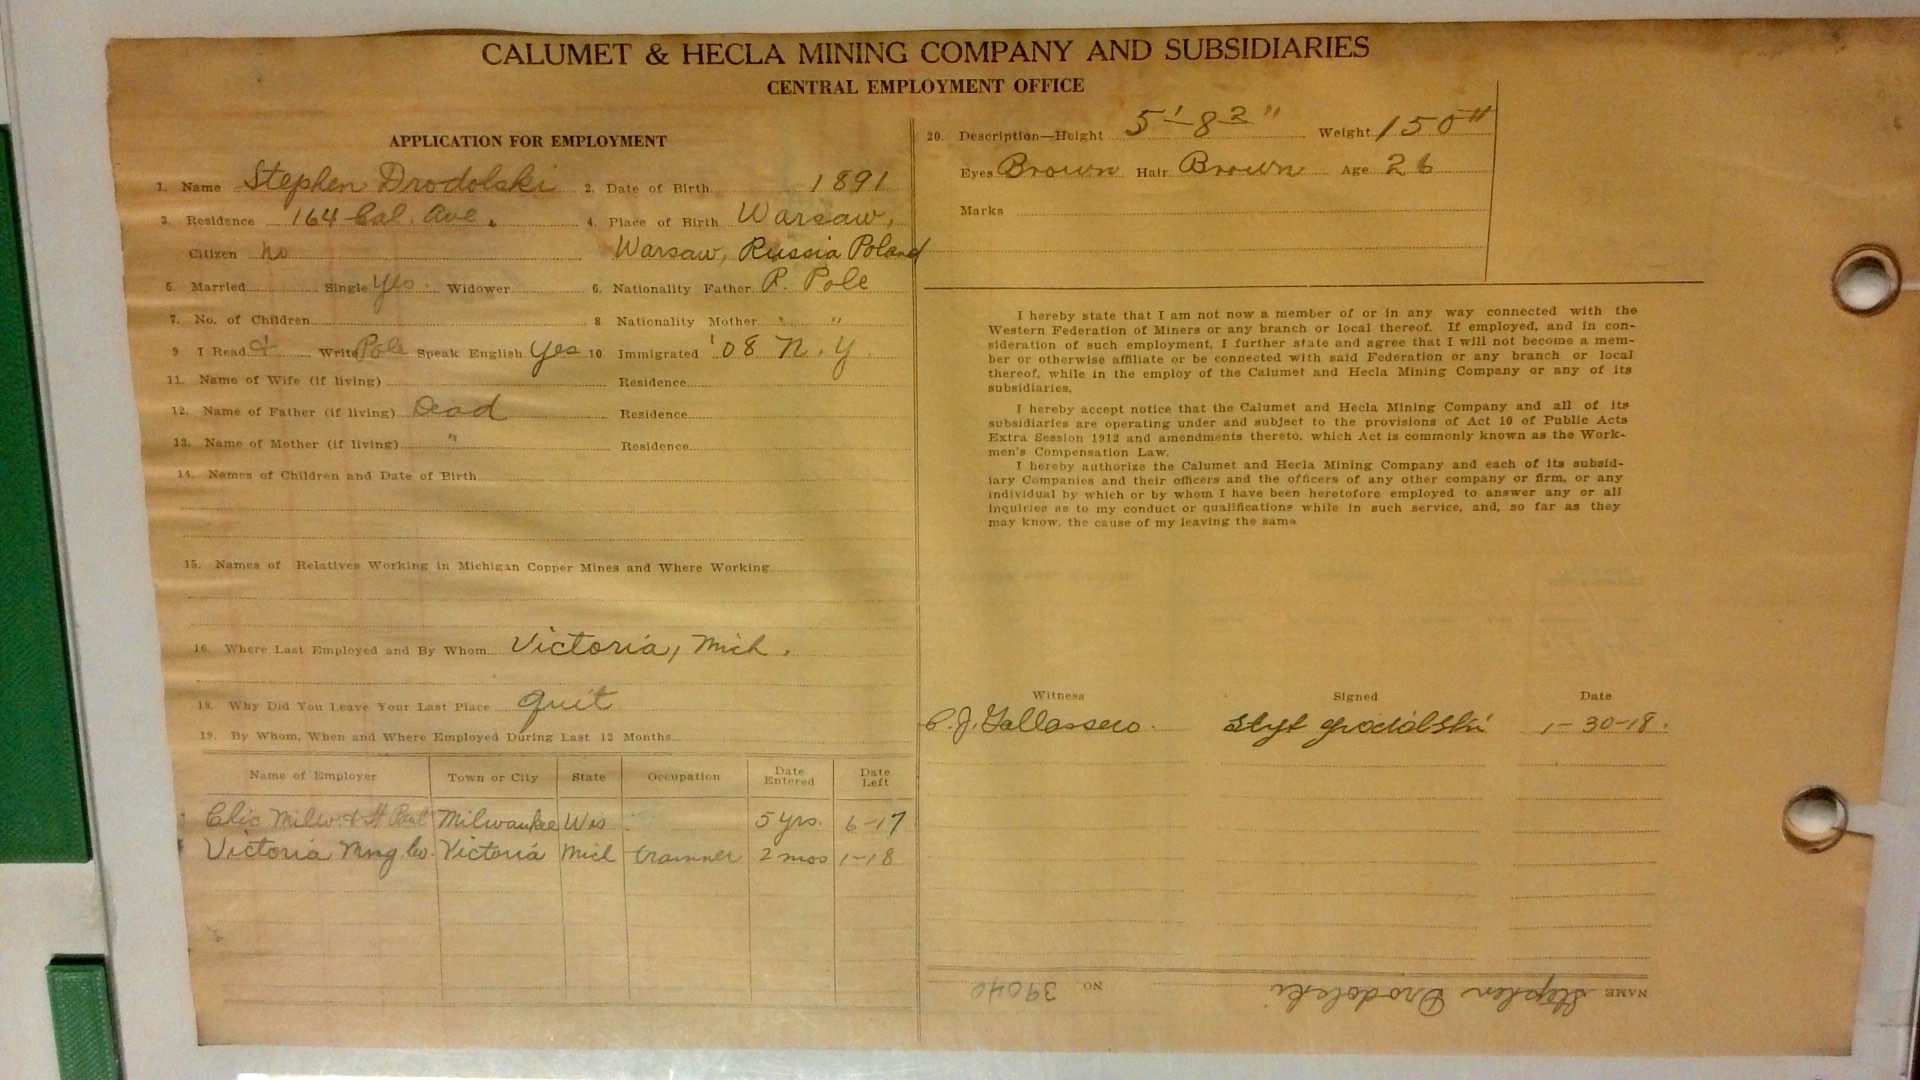 CALUMET & HECLA MINING COMPANY AND SUBSIDIARIES
CENTRAL EMPLOYMENT OFFICE
APPLICATION FOR EMPLOYMENT
1. Name Stephen Drodolski 2. Date of Birth 1891
3. Residence 164 Cal. Ave. 4. Place of Birth Warsaw,
Citizen no Warsaw, Russia Poland
5. Married Single Yes. Widower 6. Nationality Father R. Pole
7. No. of Children 8 Nationality Mother " "
9 I Read & Write Pole Speak English Yes 10 Immigrated '08 N.Y.
11. Name of Wife (if living) Residence
12. Name of Father (if living) Dead Residence
13. Name of Mother (if living) " Residence
14. Names of Children and Date of Birth
15. Names of Relatives Working in Michigan Copper Mines and Where Working
16. Where Last Employed and By Whom Victoria, Mich.
18. Why Did You Leave Your Last Place quit
19. By Whom, When and Where Employed During Last 12 Months
Name of Employer Town or City State Occupation Date Entered Date Left
Chic Milw. & St Paul Milwaukee Wis 5 yrs. 6-17
Victoria Mng Co. Victoria Mich trammer 2 mos 1-18
20. Description—Height 5'-8 2" Weight 150#
Eyes Brown Hair Brown Age 26
Marks
I hereby state that I am not now a member of or in any way connected with the
Western Federation of Miners or any branch or local thereof. If employed, and in con-
sideration of such employment, I further state and agree that I will not become a mem-
ber or otherwise affiliate or be connected with said Federation or any branch or local
thereof, while in the employ of the Calumet and Hecla Mining Company or any of its
subsidiaries.
I hereby accept notice that the Calumet and Hecla Mining Company and all of its
subsidiaries are operating under and subject to the provisions of Act 10 of Public Acts
Extra Session 1912 and amendments thereto, which Act is commonly known as the Work-
men's Compensation Law.
I hereby authorize the Calumet and Hecla Mining Company and each of its subsid-
iary Companies and their officers and the officers of any other company or firm, or any
individual by which or by whom I have been heretofore employed to answer any or all
inquiries as to my conduct or qualifications while in such service, and, so far as they
may know, the cause of my leaving the same
Witness Signed Date
1-30-18.
NAME Stephen Drodolski NO 39040